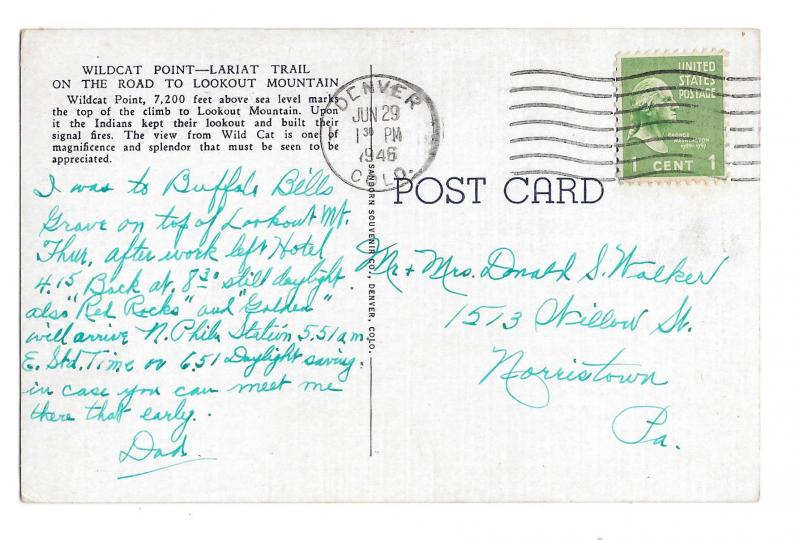 WILDCAT POINT—LARIAT TRAIL
ON THE ROAD TO LOOKOUT MOUNTAIN
Wildcat Point, 7,200 feet above sea level marks
the top of the climb to Lookout Mountain. Upon
it the Indians kept their lookout and built their
signal fires. The view from Wild Cat is one of
magnificence and splendor that must be seen to be
appreciated.
I was to Buffalo Bills
Grave on top of Lookout Mt.
Thur, after work left Hotel
4.15 Back at 8 30 still daylight.
also "Red Rocks" and "Golden"
will arrive N. Phila Station 5.51 am
E. Std. Time or 6.51 Daylight saving.
in case you can meet me
there that early.
Dad.
DENVER
JUN 29
1 30 PM
1946
COLO.
SANBORN SOUVENIR CO., DENVER, COLO.
UNITED
STATES
POSTAGE
GEORGE
WASHINGTON
1 CENT 1
POST CARD
Mr + Mrs. Donald S. Walker
1513 Willow St.
Norristown
Pa.